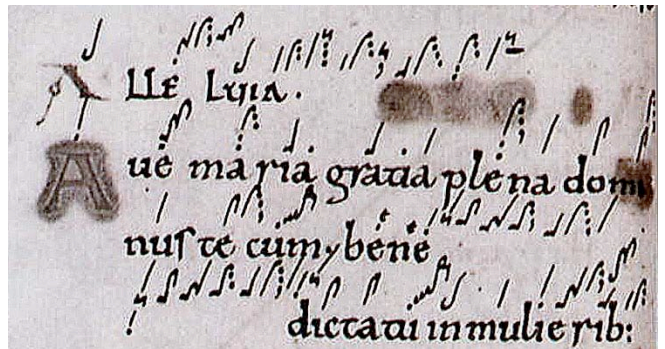 ALLE LUIA.
Aue maria gratia plena domi
nus te cum, bene
dicta tu in mulie rib: